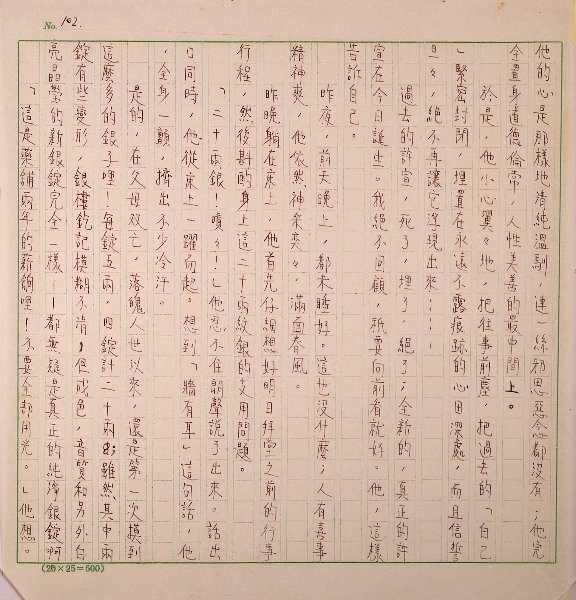 No. 102.
他的心是那樣地清純溫馴,連一絲邪思惡念都沒有;他完
全置身道德倫常,人性美善的最中間上。
於是,他小心翼々地,把往事前塵,把過去的「自己
」緊密封閉,埋置在永遠不露痕跡的心田深處,而且信誓
旦々,絕不再讓它浮現出來……
過去的許宣,死了,埋了,絕了;全新的,真正的許
宣在今日誕生。我絕不回顧,祇要向前看就好。他,這樣
告訴自己。
昨夜,前天晚上,都未睡好。這也沒什麼;人有喜事
精神爽,他依然神采奕々,滿面春風。
昨晚躺在床上,他首先仔細想好明日拜堂之前的行事
行程,然後斟的身上這二十兩紋銀的支用問題。
「二十兩銀!嘖々!」他忍不住朗聲說了出來。話出
口同時,他從床上一躍而起。想到「牆有耳」這句話,他
,全身一顫,擠出不少冷汗。
是的,在父母双亡,落魄人世以來,還是第一次摸到
這麼多的銀子哩!每錠五兩,四錠計二十兩;雖然其中兩
錠有些變形,銀樓鈐記模糊不清,但成色,音質和另外白
亮晶瑩的新銀錠完全一樣——都無疑是真正的純淨銀錠啊
「這是藥舖兩年的薪餉哩!不要全部用光。」他想。
(20×25=500)